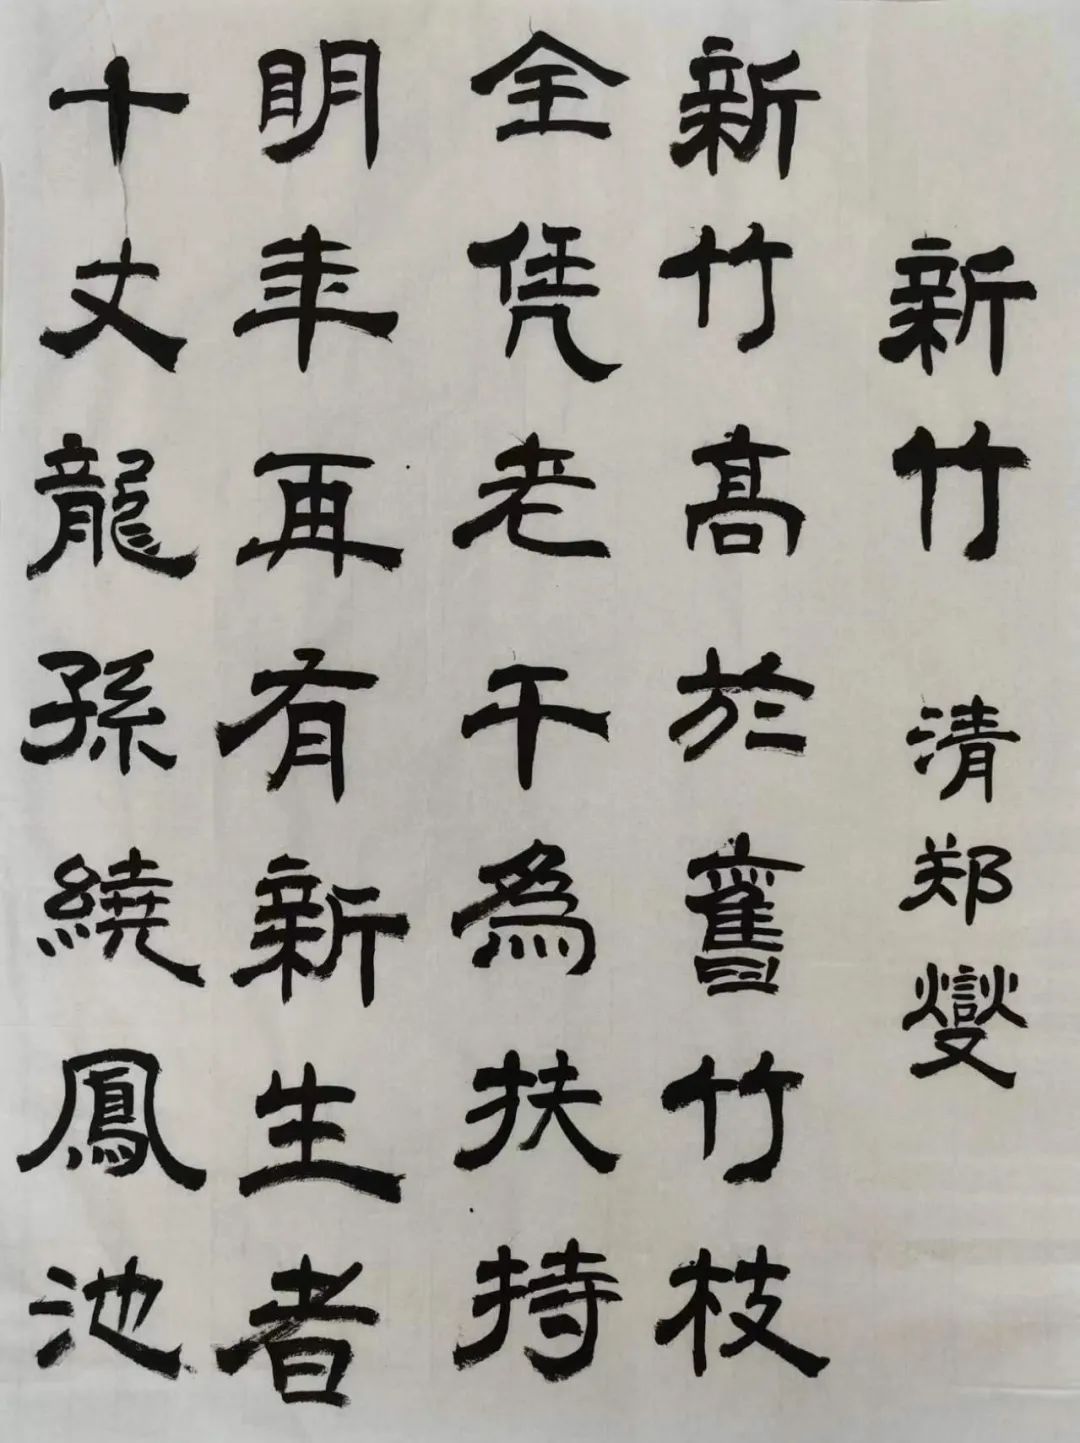 新竹 清郑燮
新竹高於舊竹枝
全凭老干為扶持
明年再有新生者
十丈龍孫繞鳳池